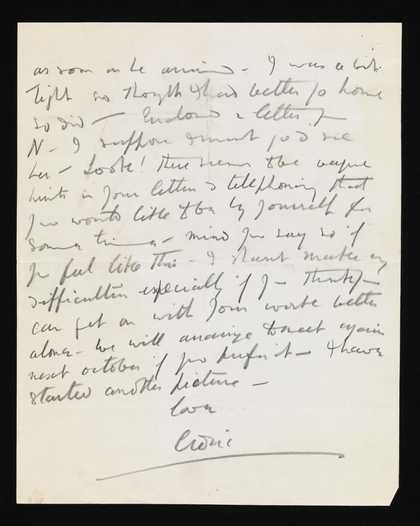 as soon as he arrived – I was a bit
tight so thought I had better go home
so did – Enclosed a letter from
N – I suppose I must go & see
her – Look! There seems to be vague
hints in your letter & telephoning that
you would like to be by yourself for
some time – mind you say so if
you feel like this – I shan't make any
difficulties especially if you think you
can get on with your work better
alone – we will arrange to meet again
next october if you prefer it – I have
started another picture –
Love